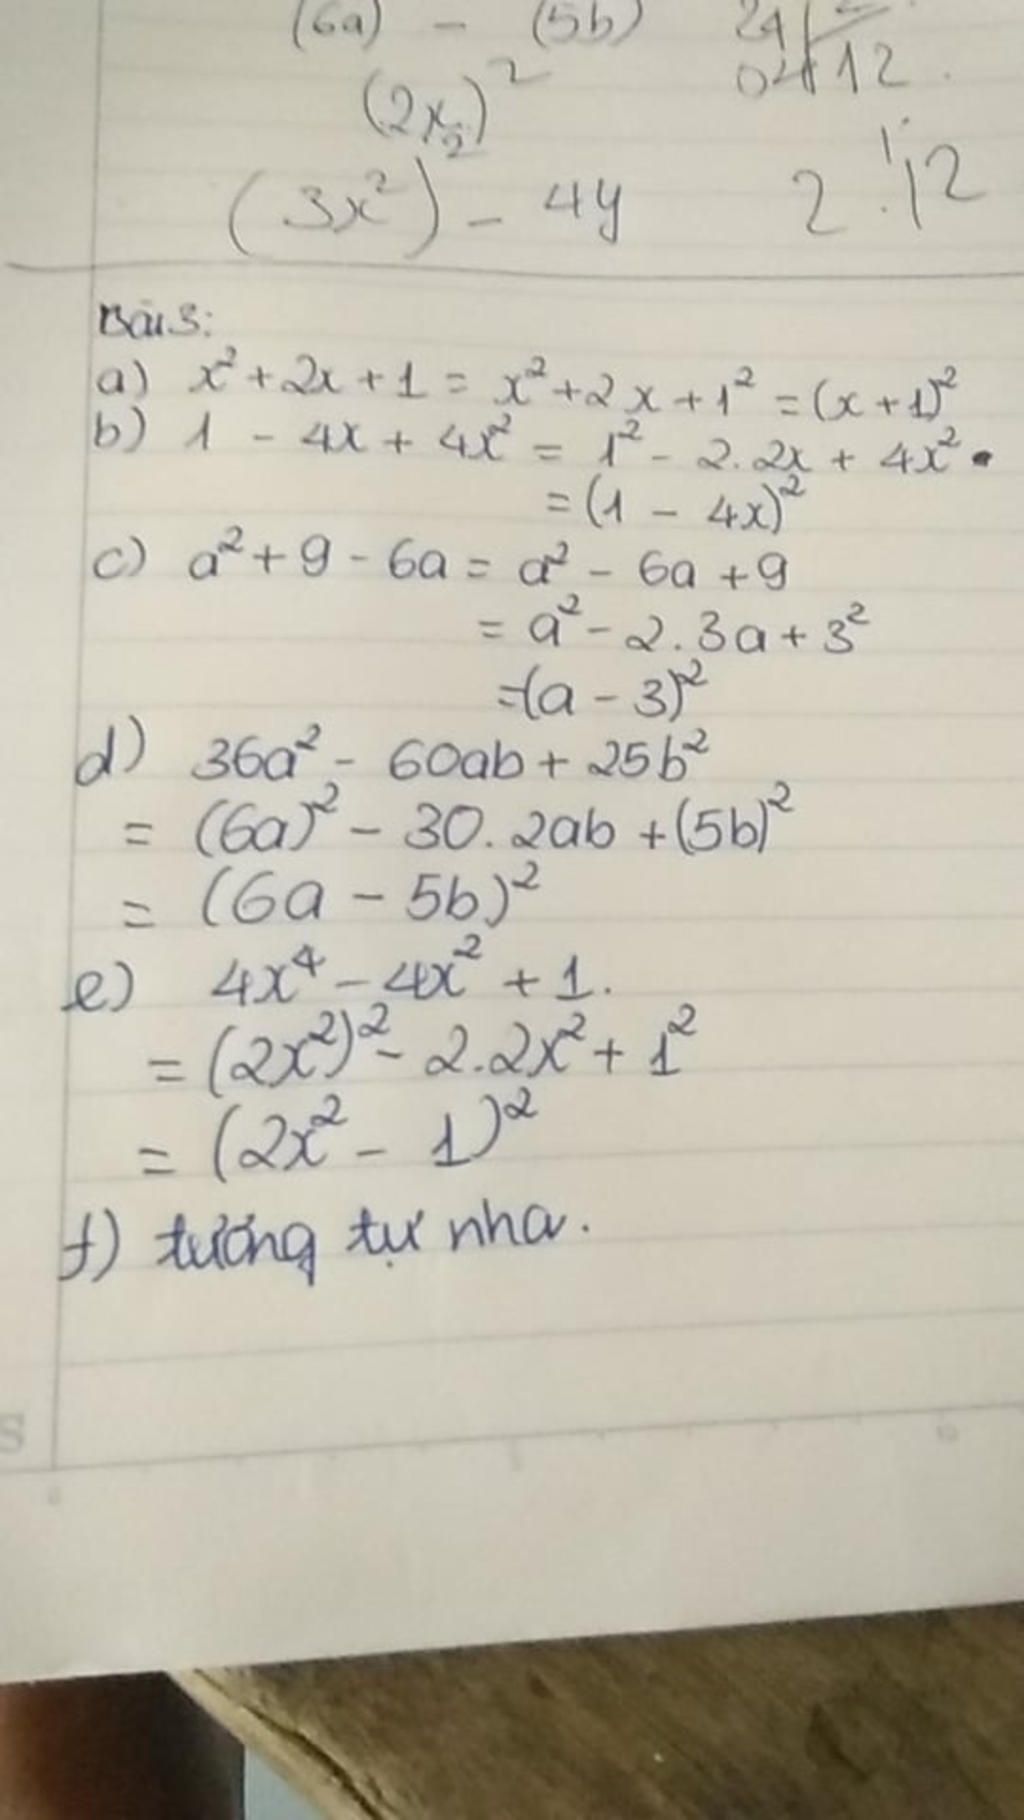 (6a) - (5b) 24
04 12
(2x2)²
(3x²) - 4y 2.12
Bài 3:
a) x² + 2x + 1 = x² + 2x + 1² = (x + 1)²
b) 1 - 4x + 4x² = 1² - 2.2x + 4x²
= (1 - 4x)²
c) a² + 9 - 6a = a² - 6a + 9
= a² - 2.3a + 3²
= (a - 3)²
d) 36a² - 60ab + 25b²
= (6a)² - 30.2ab + (5b)²
= (6a - 5b)²
e) 4x⁴ - 4x² + 1.
= (2x²)² - 2.2x² + 1²
= (2x² - 1)²
f) tương tự nha.
S
10